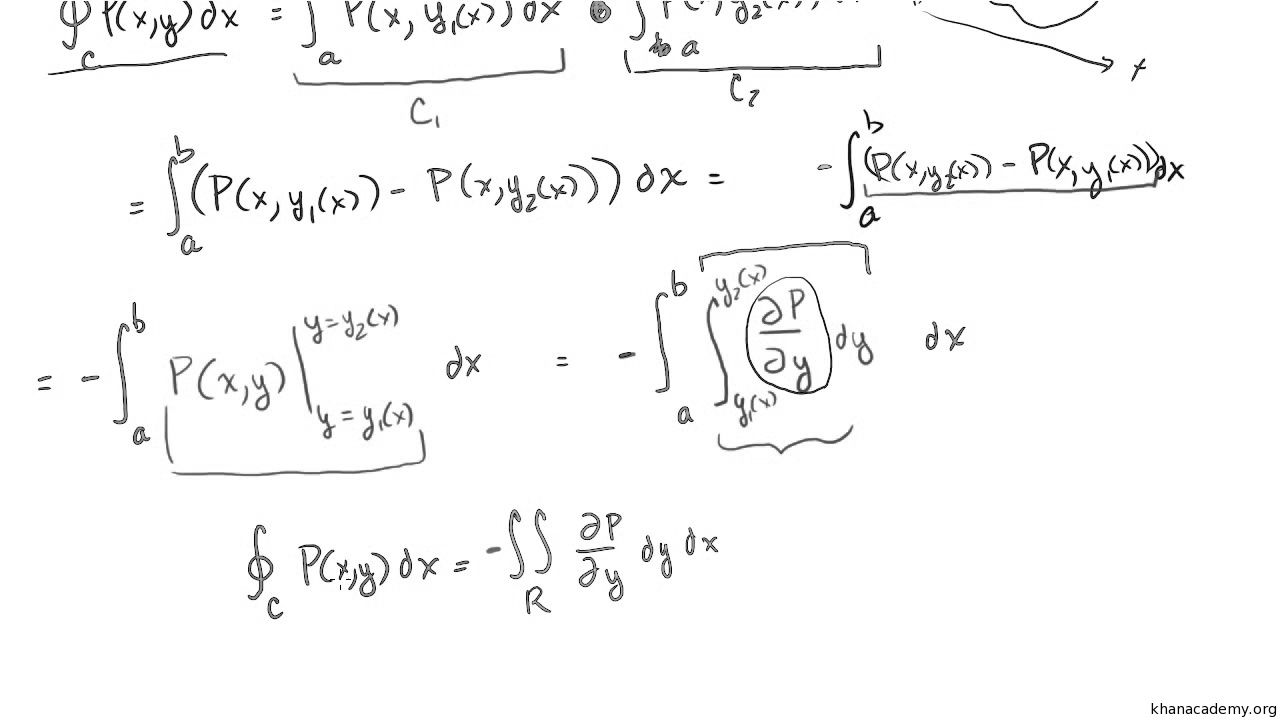 ∮_C P(x,y) dx = ∫_a P(x, y₁(x)) dx ∫_a P(x, y₂(x))
x
C₁ C₂
= ∫_a^b (P(x, y₁(x)) - P(x, y₂(x))) dx = - ∫_a^b (P(x, y₂(x)) - P(x, y₁(x))) dx
= - ∫_a^b P(x,y) |_{y = y₁(x)}^{y = y₂(x)} dx = - ∫_a^b ∫_{y₁(x)}^{y₂(x)} ∂P/∂y dy dx
∮_C P(x,y) dx = - ∬_R ∂P/∂y dy dx
khanacademy.org